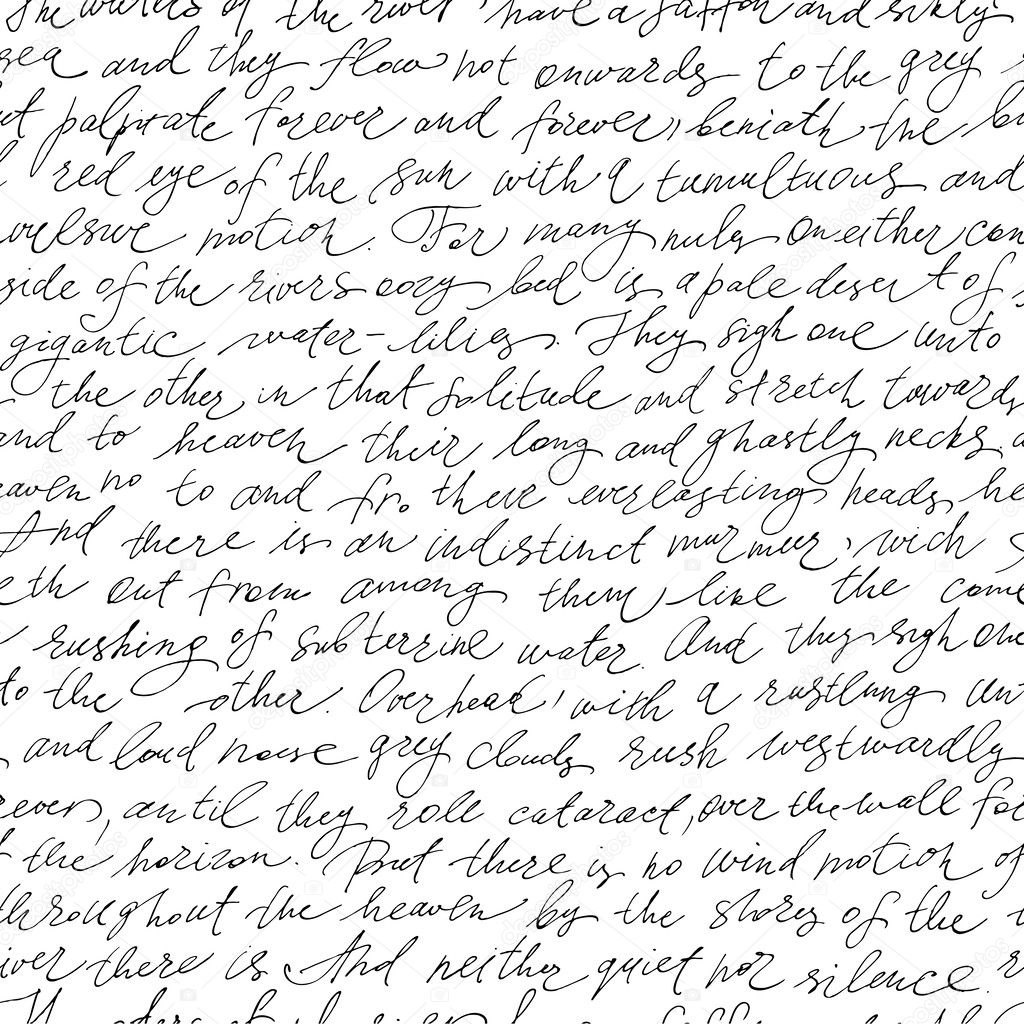 The waters of the river have a saffron and sikly
sea and they flow not onwards to the grey
ut palpitate forever and forever, beniath the bu
red eye of the sun with a tumultuous and
vuelsive motion. For many mules on either con
side of the rivers oozy bed is a pale desert of
gigantic water-lilies. They sigh one unto
the other in that solitude and stretch towards
and to heaven their long and ghastly necks.
eaven no to and fro their everlasting heads he
And there is an indistinct murmur, wich
eth out from among them like the come
rushing of subterrine water. And they sigh one
to the other. Overhead, with a rustlung unt
and loud noise grey clouds rush westwardly
rever, until they role cataract, over the wall fo
f the horizon. But there is no wind motion of
throughout the heaven by the shores of the
iver there is And neither quiet nor silence. r